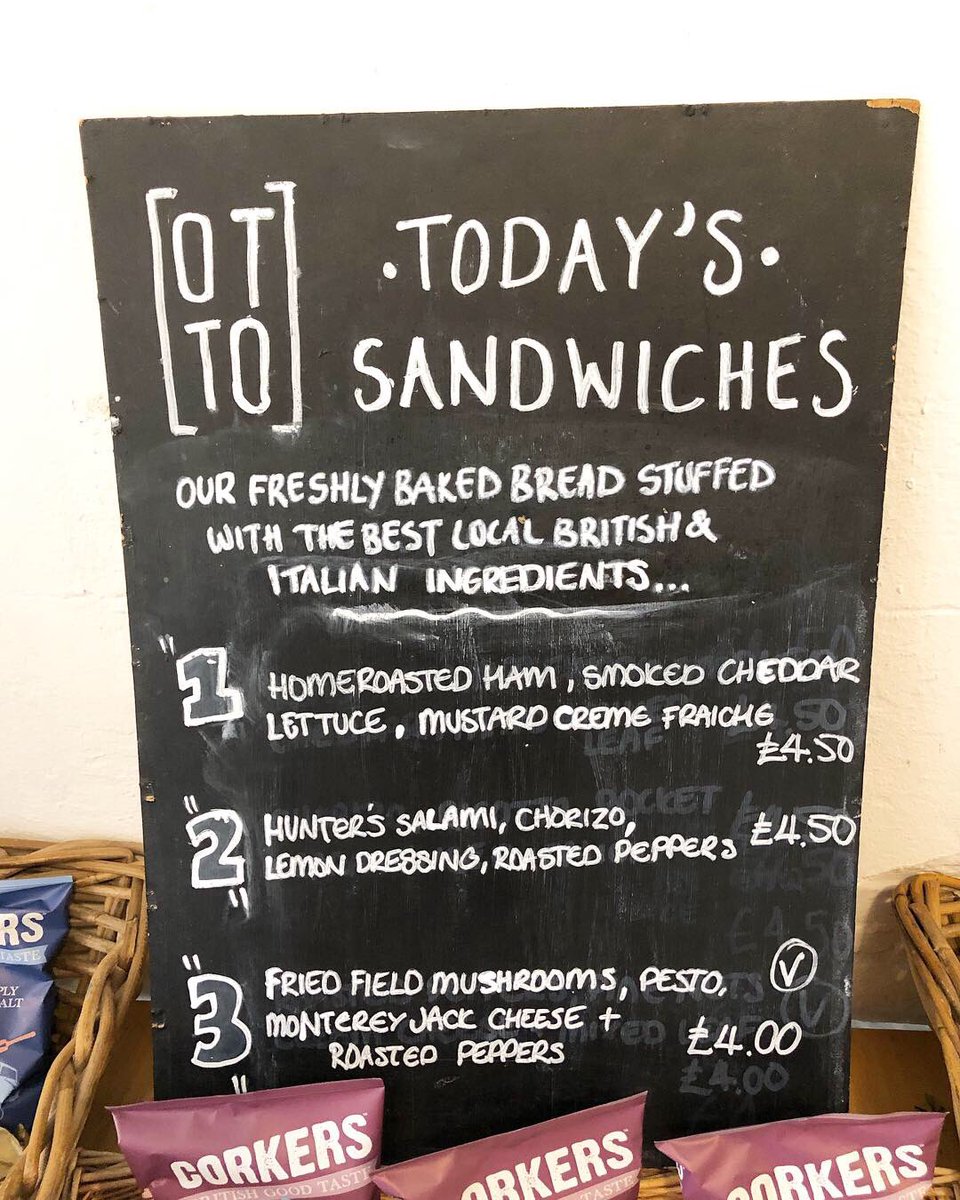 [OT
TO]
·TODAY'S·
SANDWICHES
OUR FRESHLY BAKED BREAD STUFFED
WITH THE BEST LOCAL BRITISH &
ITALIAN INGREDIENTS...
"1
HOMEROASTED HAM, SMOKED CHEDDAR
LETTUCE, MUSTARD CREME FRAICHE
£4.50
"2"
HUNTER'S SALAMI, CHORIZO,
LEMON DRESSING, ROASTED PEPPERS
£4.50
"3"
FRIED FIELD MUSHROOMS, PESTO,
MONTEREY JACK CHEESE +
ROASTED PEPPERS
V
£4.00
£4.00
RS
TASTE
PLY
ALT
CORKERS
BRITISH GOOD TASTE
ORKERS
GOOD TASTE
CORKERS